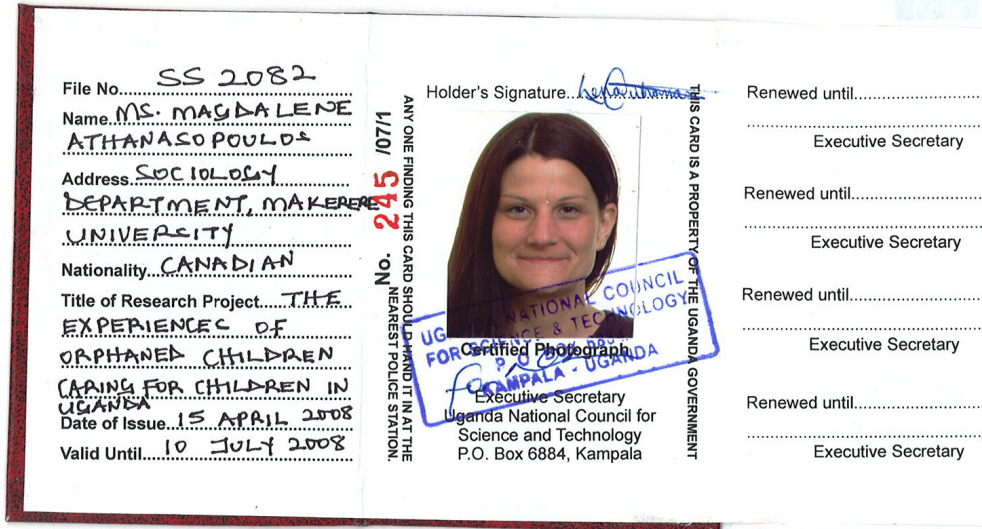 File No. SS 2082
Name. MS. MAGDALENE
ATHANASOPOULOS
Address. SOCIOLOGY
DEPARTMENT, MAKERERE
UNIVERSITY
Nationality. CANADIAN
Title of Research Project. THE
EXPERIENCES OF
ORPHANED CHILDREN
CARING FOR CHILDREN IN
UGANDA
Date of Issue. 15 APRIL 2008
Valid Until. 10 JULY 2008
No. 245 /07/1
ANY ONE FINDING THIS CARD SHOULD HAND IT IN AT THE
NEAREST POLICE STATION.
Holder's Signature.
UGANDA NATIONAL COUNCIL
FOR SCIENCE & TECHNOLOGY
P. O. BOX
KAMPALA - UGANDA
Certified Photograph
for
Executive Secretary
Uganda National Council for
Science and Technology
P.O. Box 6884, Kampala
THIS CARD IS A PROPERTY OF THE UGANDA GOVERNMENT
Renewed until
Executive Secretary
Renewed until
Executive Secretary
Renewed until
Executive Secretary
Renewed until
Executive Secretary